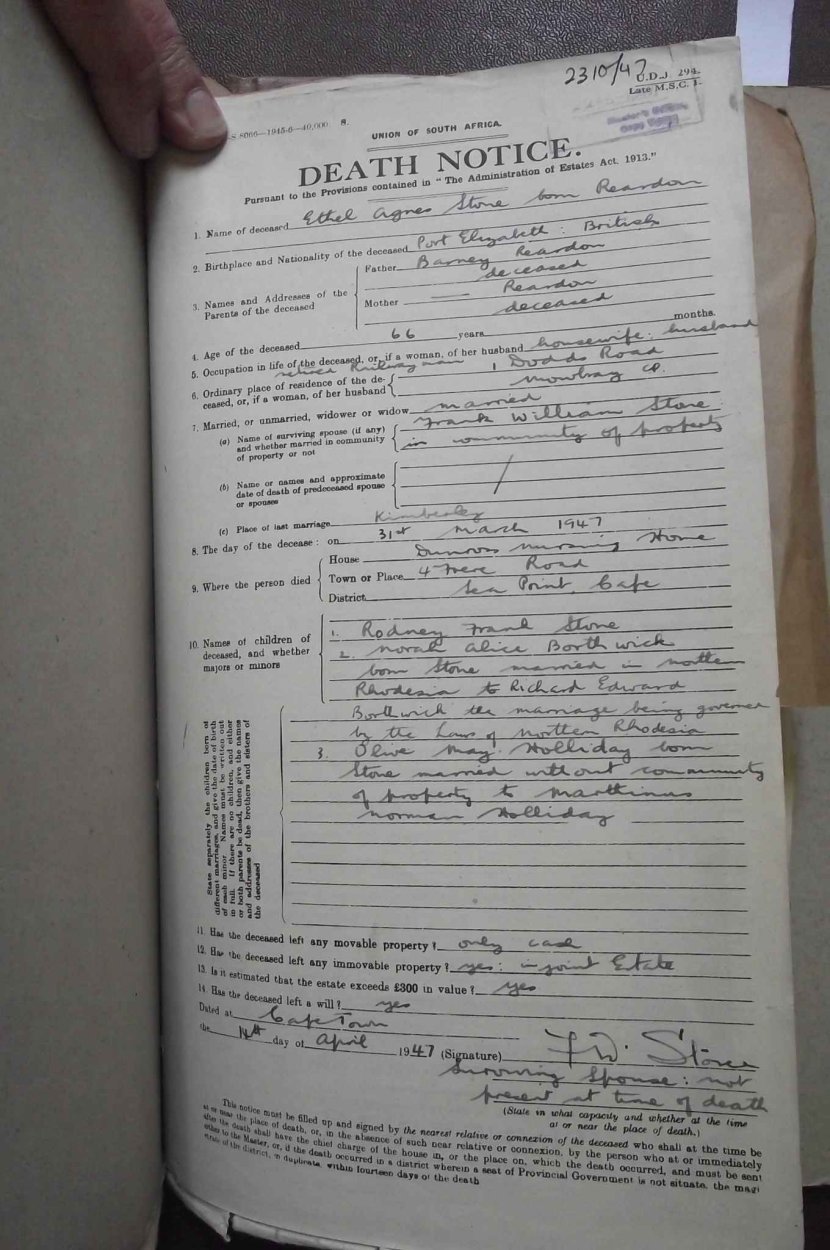 2310/47
U.D.J. 294.
Late M.S.C. 1.
S. 8066—1945-6—40,000 S.
UNION OF SOUTH AFRICA.
DEATH NOTICE.
Pursuant to the Provisions contained in "The Administration of Estates Act, 1913."
1. Name of deceased Ethel Agnes Stone born Reardon
2. Birthplace and Nationality of the deceased Port Elizabeth : British
3. Names and Addresses of the Parents of the deceased
Father Barney Reardon
deceased
Mother — Reardon
deceased
4. Age of the deceased 66 years months.
5. Occupation in life of the deceased, or, if a woman, of her husband housewife : husband
retired Railwayman
6. Ordinary place of residence of the deceased, or, if a woman, of her husband 1 Dodds Road
Mowbray CP.
7. Married, or unmarried, widower or widow married
(a) Name of surviving spouse (if any) and whether married in community of property or not
Frank William Stone :
in community of property
(b) Name or names and approximate date of death of predeceased spouse or spouses /
(c) Place of last marriage Kimberley
8. The day of the decease : on 31st March 1947
9. Where the person died
House Dunross Nursing Home
Town or Place 4 Frere Road
District Sea Point, Cape
10. Names of children of deceased, and whether majors or minors
1. Rodney Frank Stone
2. Norah Alice Borthwick
born Stone married in Northern
Rhodesia to Richard Edward
Borthwick the marriage being governed
by the Laws of Northern Rhodesia
3. Olive May Holliday born
Stone married without community
of property to Marthinus
Norman Holliday
State separately the children born of
different marriages, and give the date of birth
of each minor. Names must be written out
in full. If there are no children, and either
or both parents be dead, then give the names
and addresses of the brothers and sisters of
the deceased
11. Has the deceased left any movable property ? only cash
12. Has the deceased left any immovable property ? yes : in joint Estate
13. Is it estimated that the estate exceeds £300 in value ? yes
14. Has the deceased left a will ? yes
Dated at Cape Town
the 14th day of April 1947 (Signature) F.W. Stone
Surviving Spouse : not
present at time of death
(State in what capacity and whether at the time
at or near the place of death.)
This notice must be filled up and signed by the nearest relative or connexion of the deceased who shall at the time be
at or near the place of death, or, in the absence of such near relative or connexion, by the person who at or immediately
after the death shall have the chief charge of the house in, or the place on, which the death occurred, and must be sent
either to the Master, or, if the death occurred in a district wherein a seat of Provincial Government is not situate, the magi
strate of the district, in duplicate, within fourteen days of the death